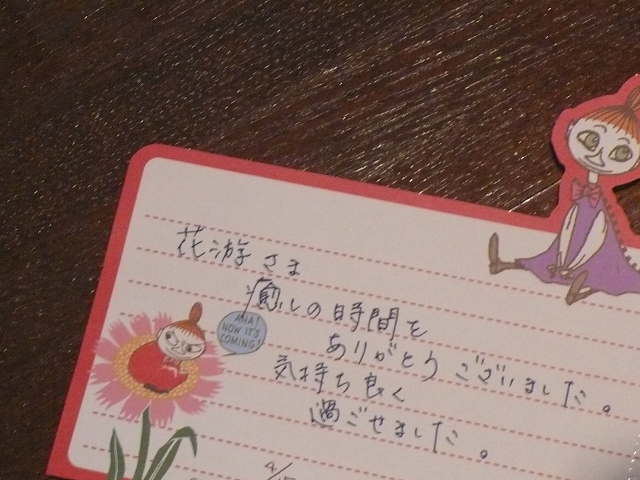 花游さま
癒しの時間を
ありがとうございました。
気持ち良く
過ごせました。
AHA!
NOW IT'S
COMING!